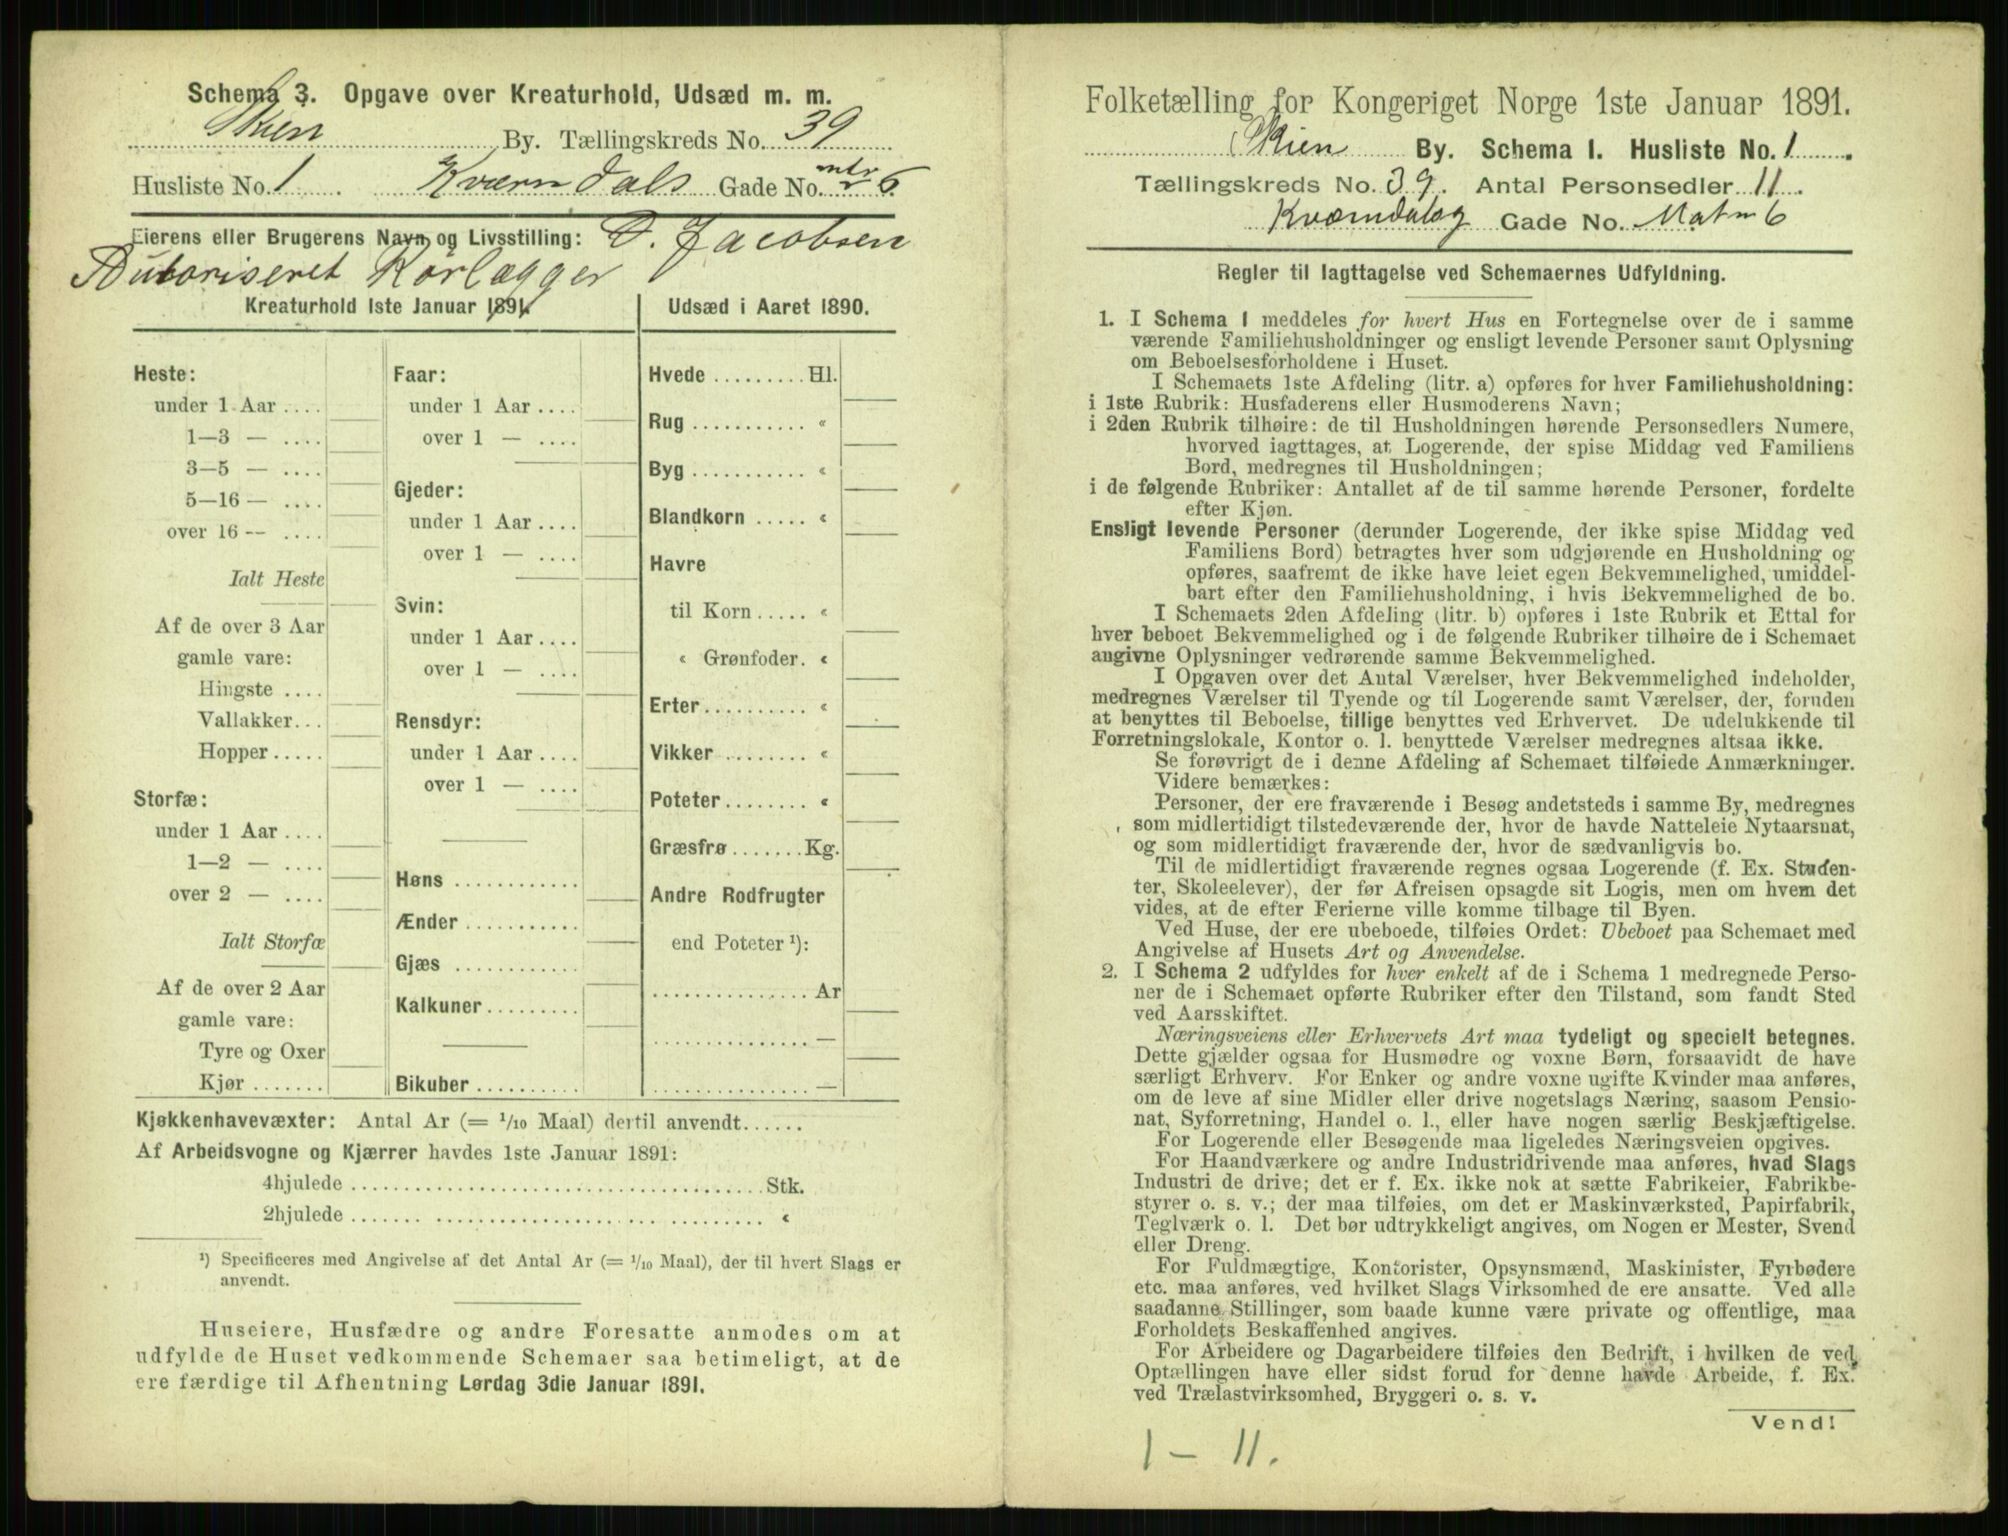 Schema 3. Opgave over Kreaturhold, Udsæd m. m.
Skien By. Tællingskreds No. 39
Husliste No. 1 Kværndals Gade No. mtr 6
Eierens eller Brugerens Navn og Livsstilling: O. Jacobsen
Autoriseret Rörlægger
Kreaturhold 1ste Januar 1891.
Heste:
under 1 Aar ....
1—3 — ....
3—5 — ....
5—16 — ....
over 16 — ....
Ialt Heste
Af de over 3 Aar
gamle vare:
Hingste ....
Vallakker...
Hopper.....
Storfæ:
under 1 Aar ....
1—2 — ....
over 2 — ....
Ialt Storfæ
Af de over 2 Aar
gamle vare:
Tyre og Oxer
Kjør .......
Faar:
under 1 Aar ....
over 1 — ....
Gjeder:
under 1 Aar ....
over 1 — ....
Svin:
under 1 Aar ....
over 1 — ....
Rensdyr:
under 1 Aar ....
over 1 — ....
Høns ............
Ænder ...........
Gjæs ............
Kalkuner .........
Bikuber ..........
Udsæd i Aaret 1890.
Hvede ......... Hl.
Rug ........... «
Byg ........... «
Blandkorn ..... «
Havre
til Korn ..... «
« Grønfoder. «
Erter.......... «
Vikker ........ «
Poteter ........ «
Græsfrø ....... Kg.
Andre Rodfrugter
end Poteter ¹):
............... Ar
............... —
............... —
Kjøkkenhavevæxter: Antal Ar (= 1/10 Maal) dertil anvendt......
Af Arbeidsvogne og Kjærrer havdes 1ste Januar 1891:
4hjulede ....................................... Stk.
2hjulede ....................................... «
¹) Specificeres med Angivelse af det Antal Ar (= 1/10 Maal), der til hvert Slags er
anvendt.
Huseiere, Husfædre og andre Foresatte anmodes om at
udfylde de Huset vedkommende Schemaer saa betimeligt, at de
ere færdige til Afhentning Lørdag 3die Januar 1891.
Folketælling for Kongeriget Norge 1ste Januar 1891.
Skien By. Schema 1. Husliste No. 1
Tællingskreds No. 39. Antal Personsedler 11.
Kværndalsg Gade No. Mat n 6
Regler til Iagttagelse ved Schemaernes Udfyldning.
1. I Schema 1 meddeles for hvert Hus en Fortegnelse over de i samme
værende Familiehusholdninger og ensligt levende Personer samt Oplysning
om Beboelsesforholdene i Huset.
I Schemaets 1ste Afdeling (litr. a) opføres for hver Familiehusholdning:
i 1ste Rubrik: Husfaderens eller Husmoderens Navn;
i 2den Rubrik tilhøire: de til Husholdningen hørende Personsedlers Numere,
hvorved iagttages, at Logerende, der spise Middag ved Familiens
Bord, medregnes til Husholdningen;
i de følgende Rubriker: Antallet af de til samme hørende Personer, fordelte
efter Kjøn.
Ensligt levende Personer (derunder Logerende, der ikke spise Middag ved
Familiens Bord) betragtes hver som udgjørende en Husholdning og
opføres, saafremt de ikke have leiet egen Bekvemmelighed, umiddel-
bart efter den Familiehusholdning, i hvis Bekvemmelighed de bo.
I Schemaets 2den Afdeling (litr. b) opføres i 1ste Rubrik et Ettal for
hver beboet Bekvemmelighed og i de følgende Rubriker tilhøire de i Schemaet
angivne Oplysninger vedrørende samme Bekvemmelighed.
I Opgaven over det Antal Værelser, hver Bekvemmelighed indeholder,
medregnes Værelser til Tyende og til Logerende samt Værelser, der, foruden
at benyttes til Beboelse, tillige benyttes ved Erhvervet. De udelukkende til
Forretningslokale, Kontor o. l. benyttede Værelser medregnes altsaa ikke.
Se forøvrigt de i denne Afdeling af Schemaet tilføiede Anmærkninger.
Videre bemærkes:
Personer, der ere fraværende i Besøg andetsteds i samme By, medregnes
som midlertidigt tilstedeværende der, hvor de havde Natteleie Nytaarsnat,
og som midlertidigt fraværende der, hvor de sædvanligvis bo.
Til de midlertidigt fraværende regnes ogsaa Logerende (f. Ex. Studen-
ter, Skoleelever), der før Afreisen opsagde sit Logis, men om hvem det
vides, at de efter Ferierne ville komme tilbage til Byen.
Ved Huse, der ere ubeboede, tilføies Ordet: Ubeboet paa Schemaet med
Angivelse af Husets Art og Anvendelse.
2. I Schema 2 udfyldes for hver enkelt af de i Schema 1 medregnede Perso-
ner de i Schemaet opførte Rubriker efter den Tilstand, som fandt Sted
ved Aarsskiftet.
Næringsveiens eller Erhvervets Art maa tydeligt og specielt betegnes.
Dette gjælder ogsaa for Husmødre og voxne Børn, forsaavidt de have
særligt Erhverv. For Enker og andre voxne ugifte Kvinder maa anføres,
om de leve af sine Midler eller drive nogetslags Næring, saasom Pensio-
nat, Syforretning, Handel o. l., eller have nogen særlig Beskjæftigelse.
For Logerende eller Besøgende maa ligeledes Næringsveien opgives.
For Haandværkere og andre Industridrivende maa anføres, hvad Slags
Industri de drive; det er f. Ex. ikke nok at sætte Fabrikeier, Fabrikbe-
styrer o. s. v.; der maa tilføies, om det er Maskinværksted, Papirfabrik,
Teglværk o. l. Det bør udtrykkeligt angives, om Nogen er Mester, Svend
eller Dreng.
For Fuldmægtige, Kontorister, Opsynsmænd, Maskinister, Fyrbødere
etc. maa anføres, ved hvilket Slags Virksomhed de ere ansatte. Ved alle
saadanne Stillinger, som baade kunne være private og offentlige, maa
Forholdets Beskaffenhed angives.
For Arbeidere og Dagarbeidere tilføies den Bedrift, i hvilken de ved
Optællingen have eller sidst forud for denne havde Arbeide, f. Ex.
ved Trælastvirksomhed, Bryggeri o. s. v.
Vend!
1 — 11.